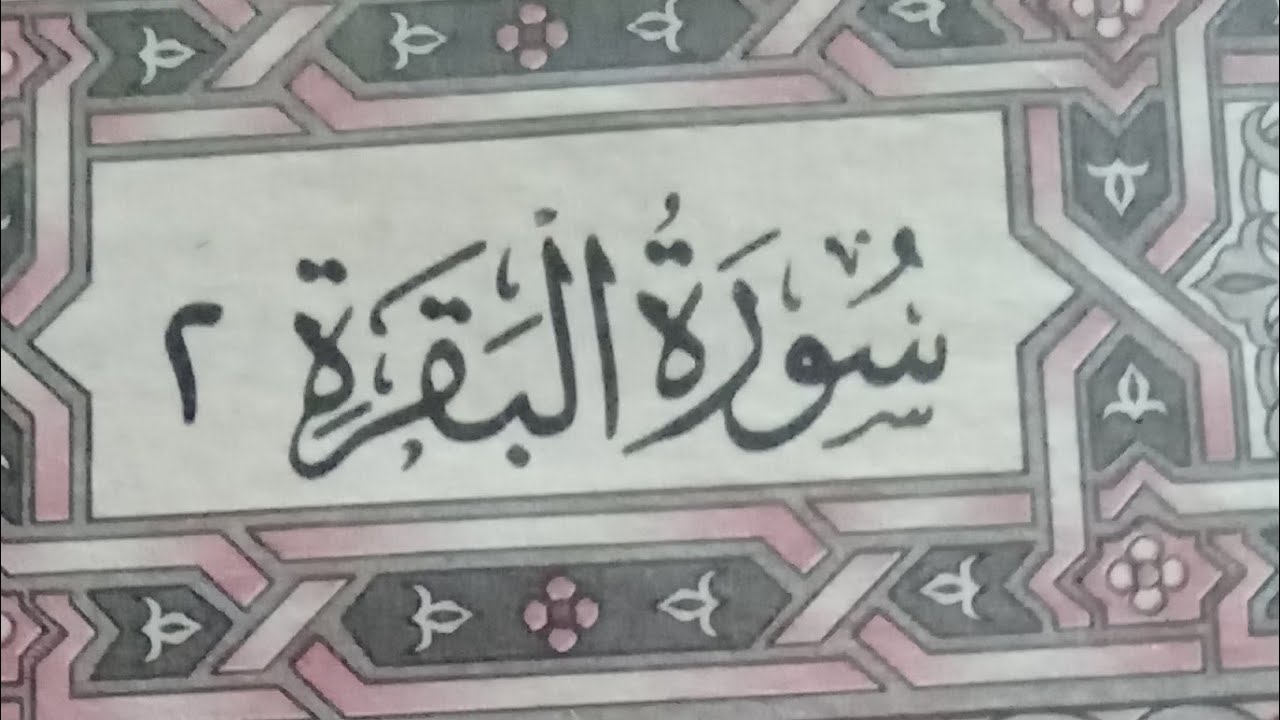 سُورَةُ الْبَقَرَةِ ٢